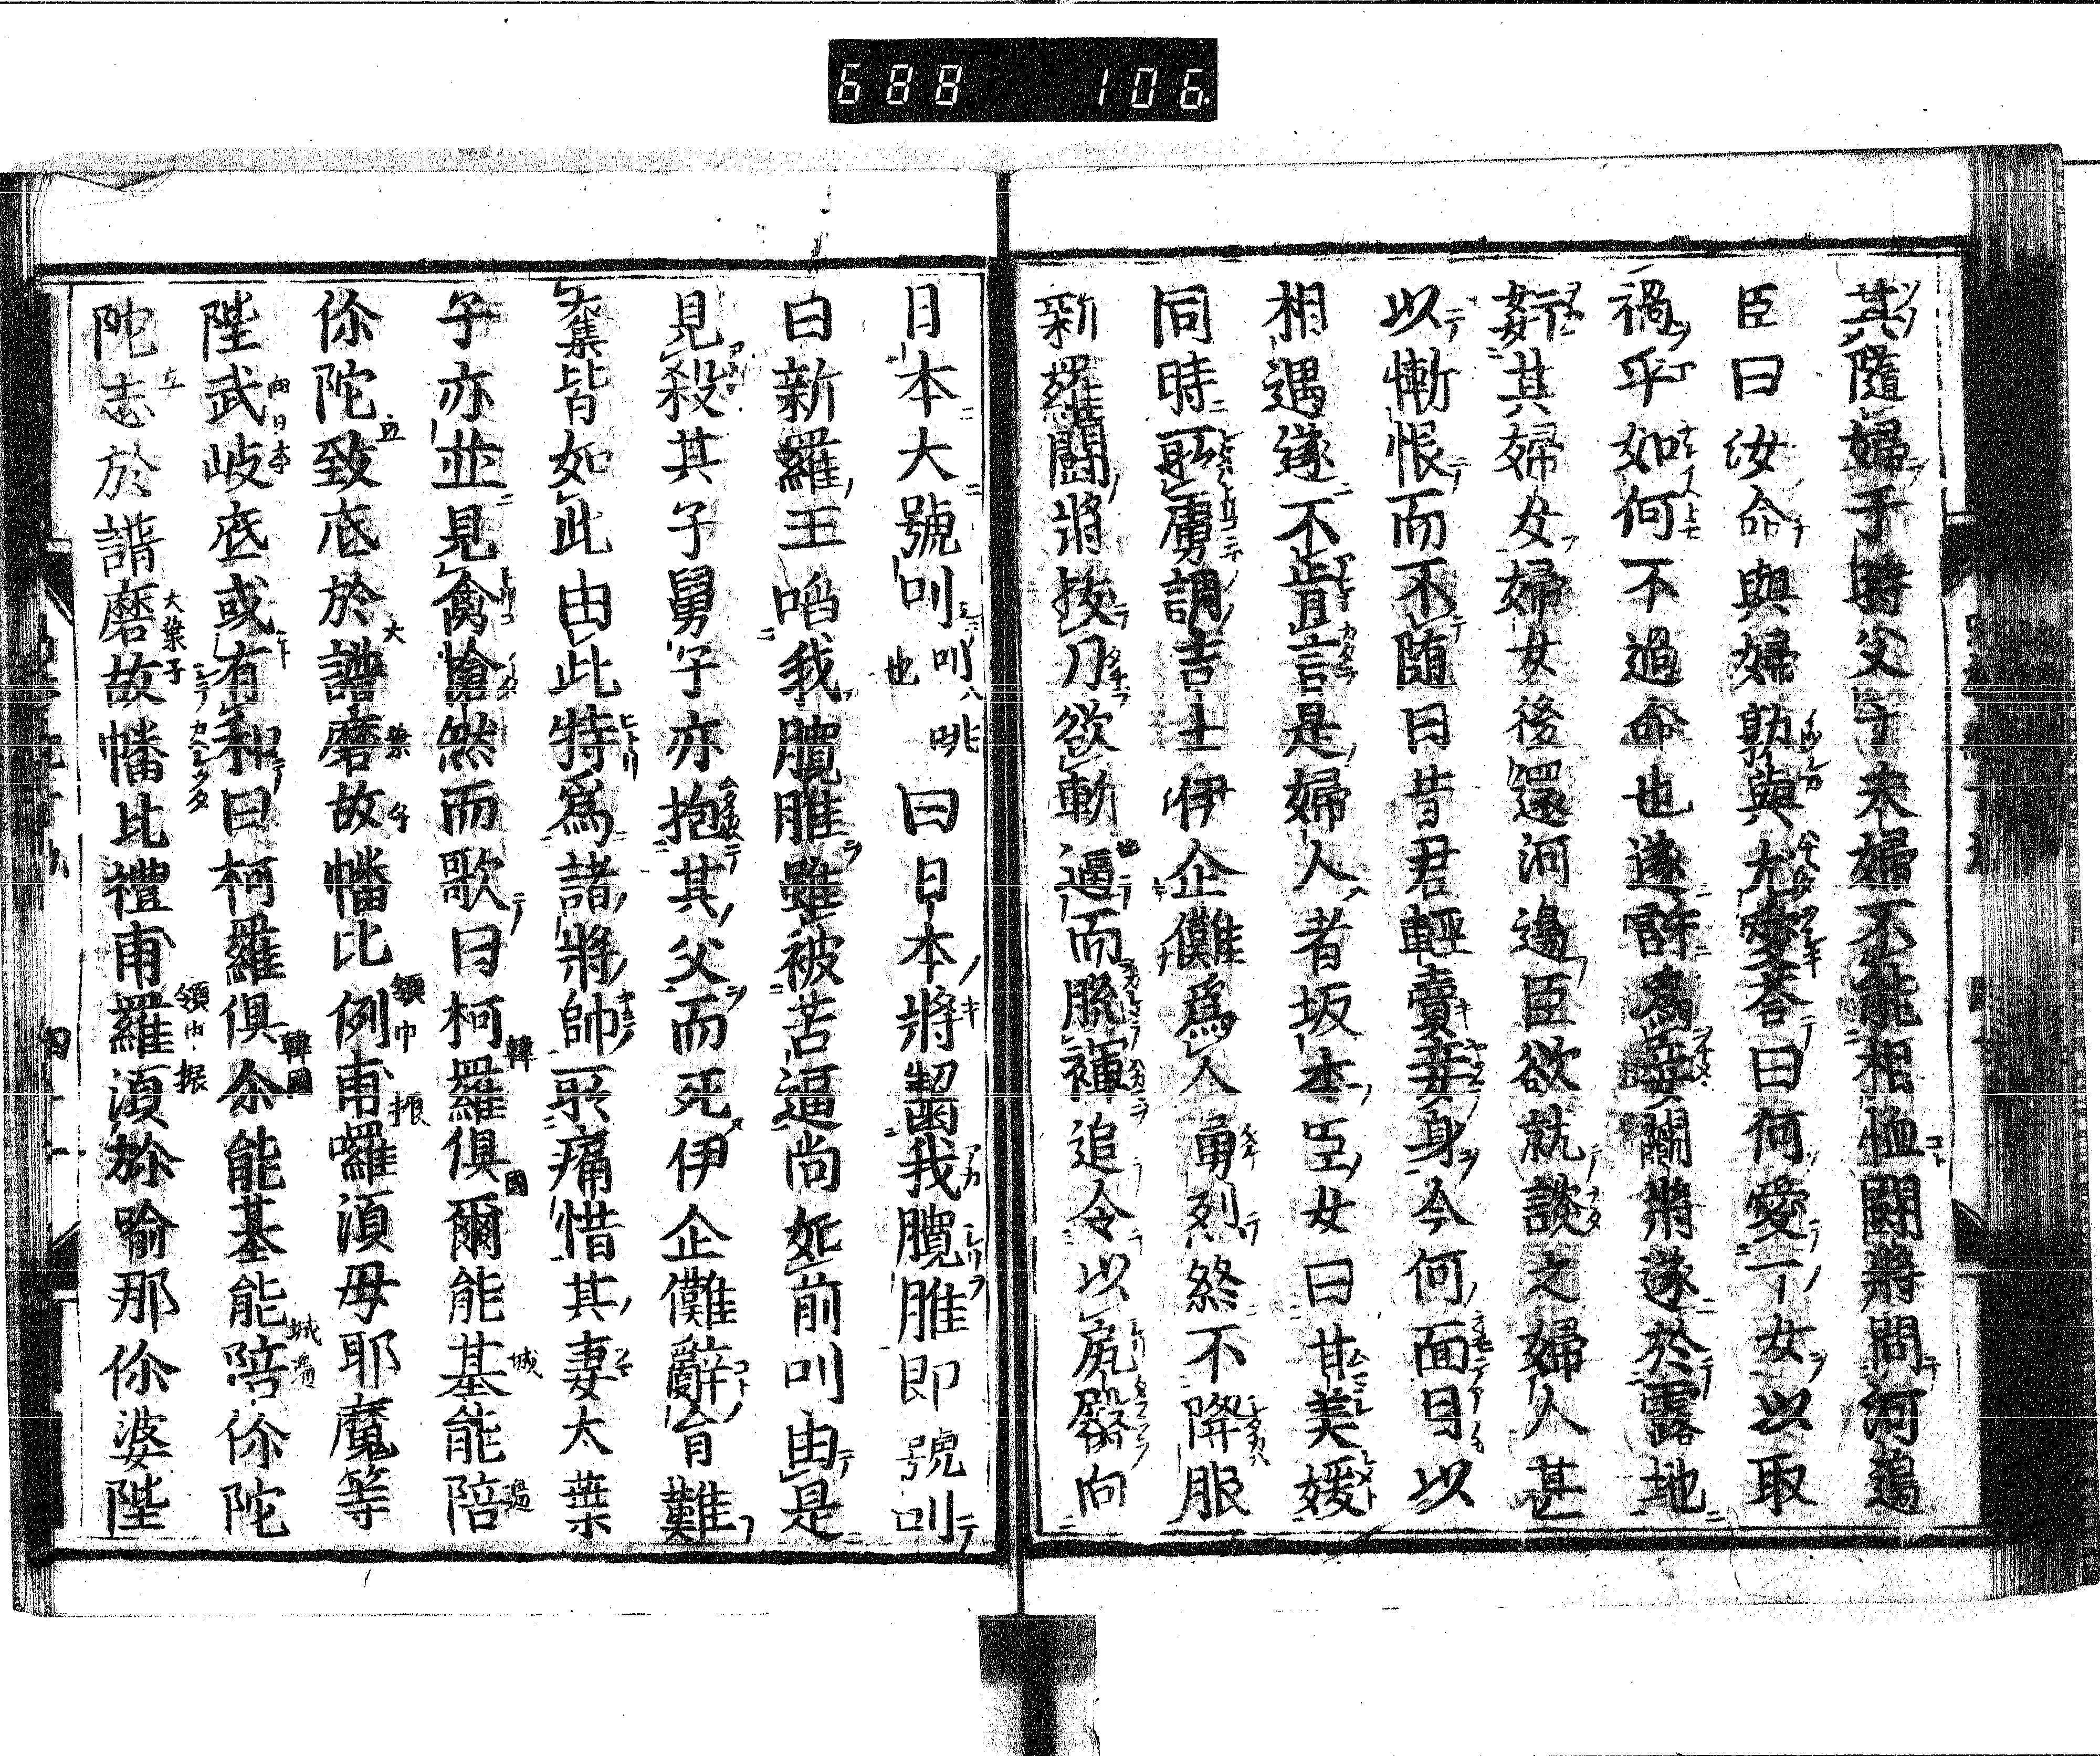 688 106
其隨婦于時父子夫婦不能相恤闘將問河邊
臣曰汝命與婦孰與尤愛荅曰何愛一女以取
禍乎如何不過命也遂許爲妾闘將遂於露地
姧其婦女婦女後還河邊臣欲就談之婦人甚
以慚恨而不随曰昔君輕賣妾身今何面目以
相遇遂不肯言是婦人者坂本臣女曰甘美媛
同時所虜調吉士伊企儺爲人勇烈終不降服
新羅闘將按刀欲斬逼而脱褌追令以尻臀向
日本大號叫叫咷也曰日本將齧我臗脽即號叫
曰新羅王啗我臗脽雖被苦逼尚如前叫由是
見殺其子舅子亦抱其父而死伊企儺辭旨難
奪皆如此由此特爲諸將帥所痛惜其妻大葉
子亦並見禽愴然而歌曰柯羅俱爾能基能陪
伱陀致底於譜磨故幡比例甫囉湏母耶魔等
陛武岐底或有和曰柯羅俱尒能基能陪伱陀
陀志於譜磨故幡比禮甫羅湏於喻那伱婆陛